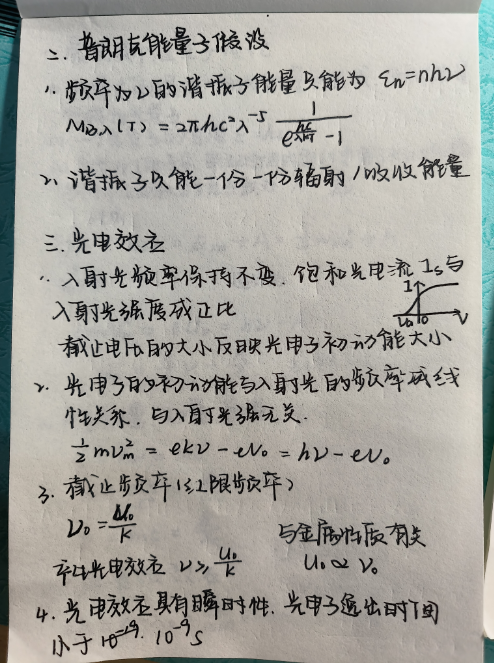 二、普朗克能量子假设
1. 频率为ν的谐振子能量只能为 εn=nhν
M_{Bλ}(T) = 2πhc²λ⁻⁵ 1/(e^{hc/λkT} - 1)
2. 谐振子只能一份一份辐射/吸收能量
三、光电效应
1. 入射光频率保持不变,饱和光电流 Is与
入射光强度成正比
I
U₀ 0 V
截止电压的大小反映光电子初动能大小
2. 光电子的初动能与入射光的频率成线
性关系,与入射光强无关.
½mv²m = ekν - eU₀ = hν - eU₀
3. 截止频率(红限频率)
ν₀ = U₀/k
与金属性质有关
产生光电效应 ν ≥ U₀/k
U₀ ∝ ν₀
4. 光电效应具有瞬时性. 光电子逸出时间
小于 10⁻⁹s